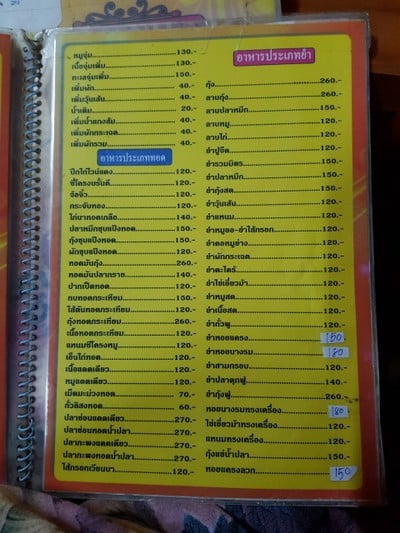 หมูจุ่ม 130.-
เนื้อจุ่มเพิ่ม 130.-
ทะเลจุ่มเพิ่ม 150.-
เพิ่มผัก 40.-
เพิ่มวุ้นเส้น 40.-
น้ำเติม 20.-
เพิ่มน้ำแกงส้ม 40.-
เพิ่มผักกระเฉด 40.-
เพิ่มผักรวม 40.-
อาหารประเภททอด
ปีกไก่ไวน์แดง 120.-
ซี่โครงบรั่นดี 120.-
จ๊อจิ๋ว 120.-
กระจับทอง 120.-
ไก่นาทอดเกลือ 140.-
ปลาหมึกชุบแป้งทอด 150.-
กุ้งชุบแป้งทอด 150.-
ผักชุบแป้งทอด 120.-
ทอดมันกุ้ง 260.-
ทอดมันปลากราย 140.-
ปากเป็ดทอด 120.-
กบทอดกระเทียม 150.-
ไส้ตันทอดกระเทียม 120.-
กุ้งทอดกระเทียม 260.-
เนื้อทอดกระเทียม 120.-
แหนมซี่โครงหมู 120.-
เอ็นไก่ทอด 120.-
เนื้อแดดเดียว 120.-
หมูแดดเดียว 120.-
เม็ดมะม่วงทอด 70.-
ถั่วลิสงทอด 60.-
ปลาช่อนแดดเดียว 270.-
ปลาช่อนทอดน้ำปลา 270.-
ปลากะพงแดดเดียว 270.-
ปลากะพงทอดน้ำปลา 270.-
ไส้กรอกเวียนนา 120.-
อาหารประเภทยำ
กุ้ง 260.-
ลาบกุ้ง 260.-
ลาบปลาหมึก 150.-
ลาบหมู 120.-
ลาบไก่ 120.-
ยำปูจืด 120.-
ยำรวมมิตร 150.-
ยำปลาหมึก 150.-
ยำกุ้งสด 150.-
ยำวุ้นเส้น 120.-
ยำแหนม 120.-
ยำหมูยอ-ยำไส้กรอก 120.-
ยำคอหมูย่าง 120.-
ยำผักกระเฉด 120.-
ยำตะไคร้ 120.-
ยำไข่เยี่ยวม้า 120.-
ยำหมูสด 120.-
ยำเนื้อสด 120.-
ยำถั่วพู 120.-
ยำหอยแครง 150
ยำหอยนางรม 180
ยำสามกรอบ 120.-
ยำปลาดุกฟู 140.-
ยำกุ้งฟู 260.-
หอยนางรมทรงเครื่อง 180
ไข่เยี่ยวม้าทรงเครื่อง 120.-
แหนมทรงเครื่อง 120.-
กุ้งแช่น้ำปลา 150.-
หอยแครงลวก 150